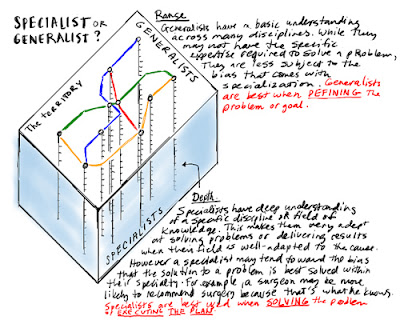 SPECIALIST OR
GENERALIST?
Range
Generalists have a basic understanding
across many disciplines. While they
may not have the specific
expertise required to solve a problem,
They are less subject to the
bias that comes with
specialization. Generalists
are best when DEFINING the
problem or goal.
GENERALISTS
The TERRITORY
SPECIALISTS
Depth
Specialists have deep understanding
of a specific discipline or field of
knowledge. This makes them very adept
at solving problems or delivering results
when their field is well-adapted to the cause.
However a specialist may tend toward the bias
that the solution to a problem is best solved within
their specialty. For example, a surgeon may be more
likely to recommend surgery because that's what he knows.
Specialists are best used when SOLVING the problem
or EXECUTING THE PLAN